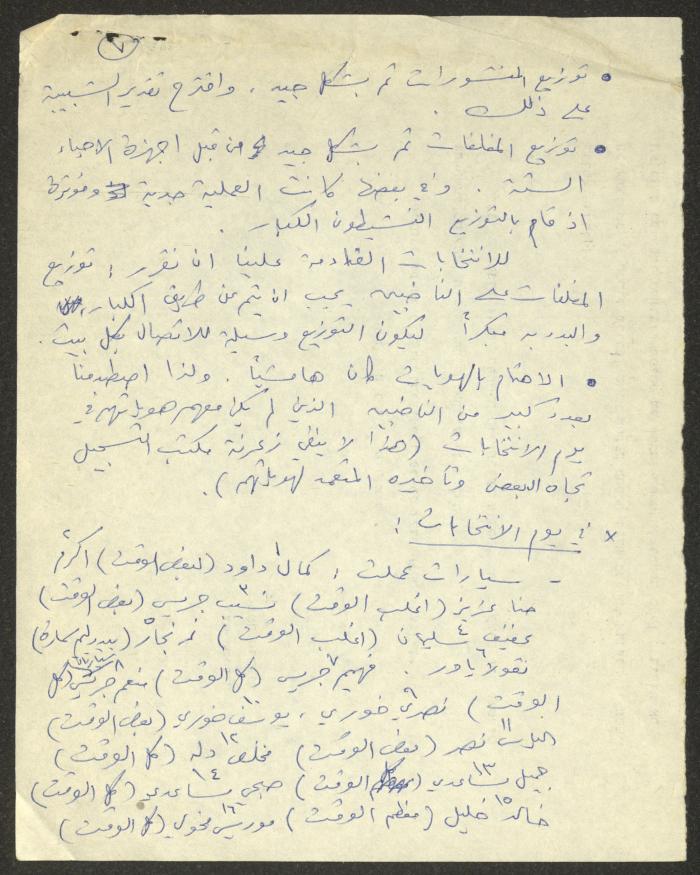 ٧
• توزيع المنشورات تم بشكل جيد، واقترح تقدير الشبيبة
على ذلك.
• توزيع المغلفات تم بشكل جيد من قبل اجهزة الاحياء
الستة. وفي بعضها كانت العملية جدية ومؤثرة
اذ قام بالتوزيع النشيطون الكبار.
للانتخابات القادمة علينا ان نقرر: توزيع
المغلفات على الناخبين يجب ان يتم عن طريق الكبار،
والبدء به مبكراً ليكون التوزيع وسيلة للاتصال بكل بيت.
• الاهتمام بالهويات كان هامشياً. ولذا اصطدمنا
بعدد كبير من الناخبين الذين لم يكن معهم هوياتهم في
يوم الانتخابات (هذا لا ينفي زعرنة مكتب التسجيل
تجاه البعض وتأخيره المتعمد لهوياتهم).
× في يوم الانتخابات:
- سيارات عملت: كمال ١ داود (لبعض الوقت) اكرم ٢
حنا عزيز (اغلب الوقت) نسيب ٣ جريس (بعض الوقت)
عفيف ٤ سليمان (اغلب الوقت) نمر نجار ٥ (
نقولا ٦ ياور. فهيم ٧ جريس (كل الوقت) منعم ٨ جريس (كل
الوقت) نصري ٩ خوري، يوسف ١٠ خوري (بعض الوقت)
١١ نصر (بعض الوقت) مخلص ١٢ دله (كل الوقت)
جميل ١٣ مساعدي (الوقت) صبحي ١٤ مساعدي (كل الوقت)
خالد ١٥ خليل (معظم الوقت) موريس ١٦ مخولي (كل الوقت)